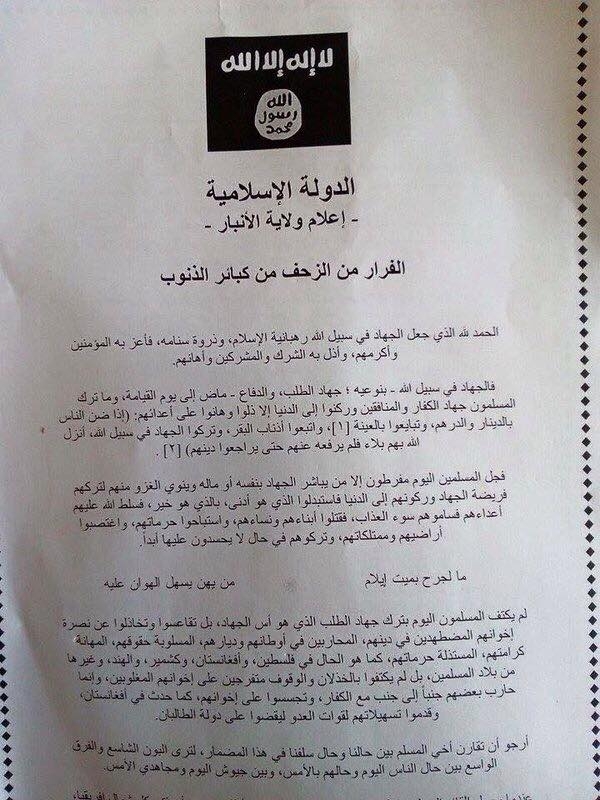 لا إله إلا الله
الله
رسول
محمد
الدولة الإسلامية
- إعلام ولاية الأنبار -
الفرار من الزحف من كبائر الذنوب
الحمد لله الذي جعل الجهاد في سبيل الله رهبانية الإسلام، وذروة سنامه، فأعز به المؤمنين
وأكرمهم، وأذل به الشرك والمشركين وأهانهم.
فالجهاد في سبيل الله - بنوعيه ؛ جهاد الطلب، والدفاع - ماض إلى يوم القيامة، وما ترك
المسلمون جهاد الكفار والمنافقين وركنوا إلى الدنيا إلا ذلوا وهانوا على أعدائهم: (إذا ضن الناس
بالدينار والدرهم، وتبايعوا بالعينة [١]، واتبعوا أذناب البقر، وتركوا الجهاد في سبيل الله، أنزل
الله بهم بلاء فلم يرفعه عنهم حتى يراجعوا دينهم) [٢] .
فجل المسلمين اليوم مفرطون إلا من يباشر الجهاد بنفسه أو ماله وينوي الغزو منهم لتركهم
فريضة الجهاد وركونهم إلى الدنيا فاستبدلوا الذي هو أدنى، بالذي هو خير، فسلط الله عليهم
أعداءهم فساموهم سوء العذاب، فقتلوا أبناءهم ونساءهم، واستباحوا حرماتهم، واغتصبوا
أراضيهم وممتلكاتهم، وتركوهم في حال لا يحسدون عليها أبداً.
من يهن يسهل الهوان عليه ما لجرح بميت إيلام
لم يكتف المسلمون اليوم بترك جهاد الطلب الذي هو أس الجهاد، بل تقاعسوا وتخاذلوا عن نصرة
إخوانهم المضطهدين في دينهم، المحاربين في أوطانهم وديارهم، المسلوبة حقوقهم، المهانة
كرامتهم، المستذلة حرماتهم، كما هو الحال في فلسطين، وأفغانستان، وكشمير، والهند، وغيرها
من بلاد المسلمين، بل لم يكتفوا بالخذلان والوقوف متفرجين على إخوانهم المغلوبين، وإنما
حارب بعضهم جنباً إلى جنب مع الكفار، وتجسسوا على إخوانهم، كما حدث في أفغانستان،
وقدموا تسهيلاتهم لقوات العدو ليقضوا على دولة الطالبان.
أرجو أن تقارن أخي المسلم بين حالنا وحال سلفنا في هذا المضمار، لترى البون الشاسع والفرق
الواسع بين حال الناس اليوم وحالهم بالأمس، وبين جيوش اليوم ومجاهدي الأمس.